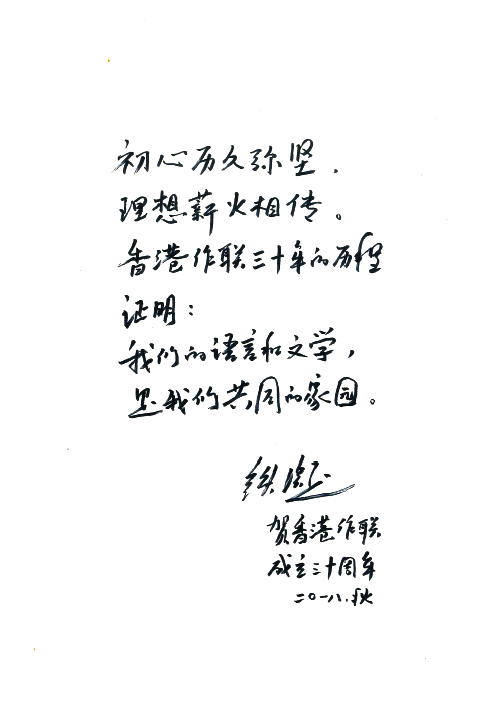 初心历久弥坚，
理想薪火相传。
香港作联三十年的历程
证明：
我们的语言和文学，
是我们共同的家园。
铁凝
贺香港作联
成立三十周年
二〇一八.秋